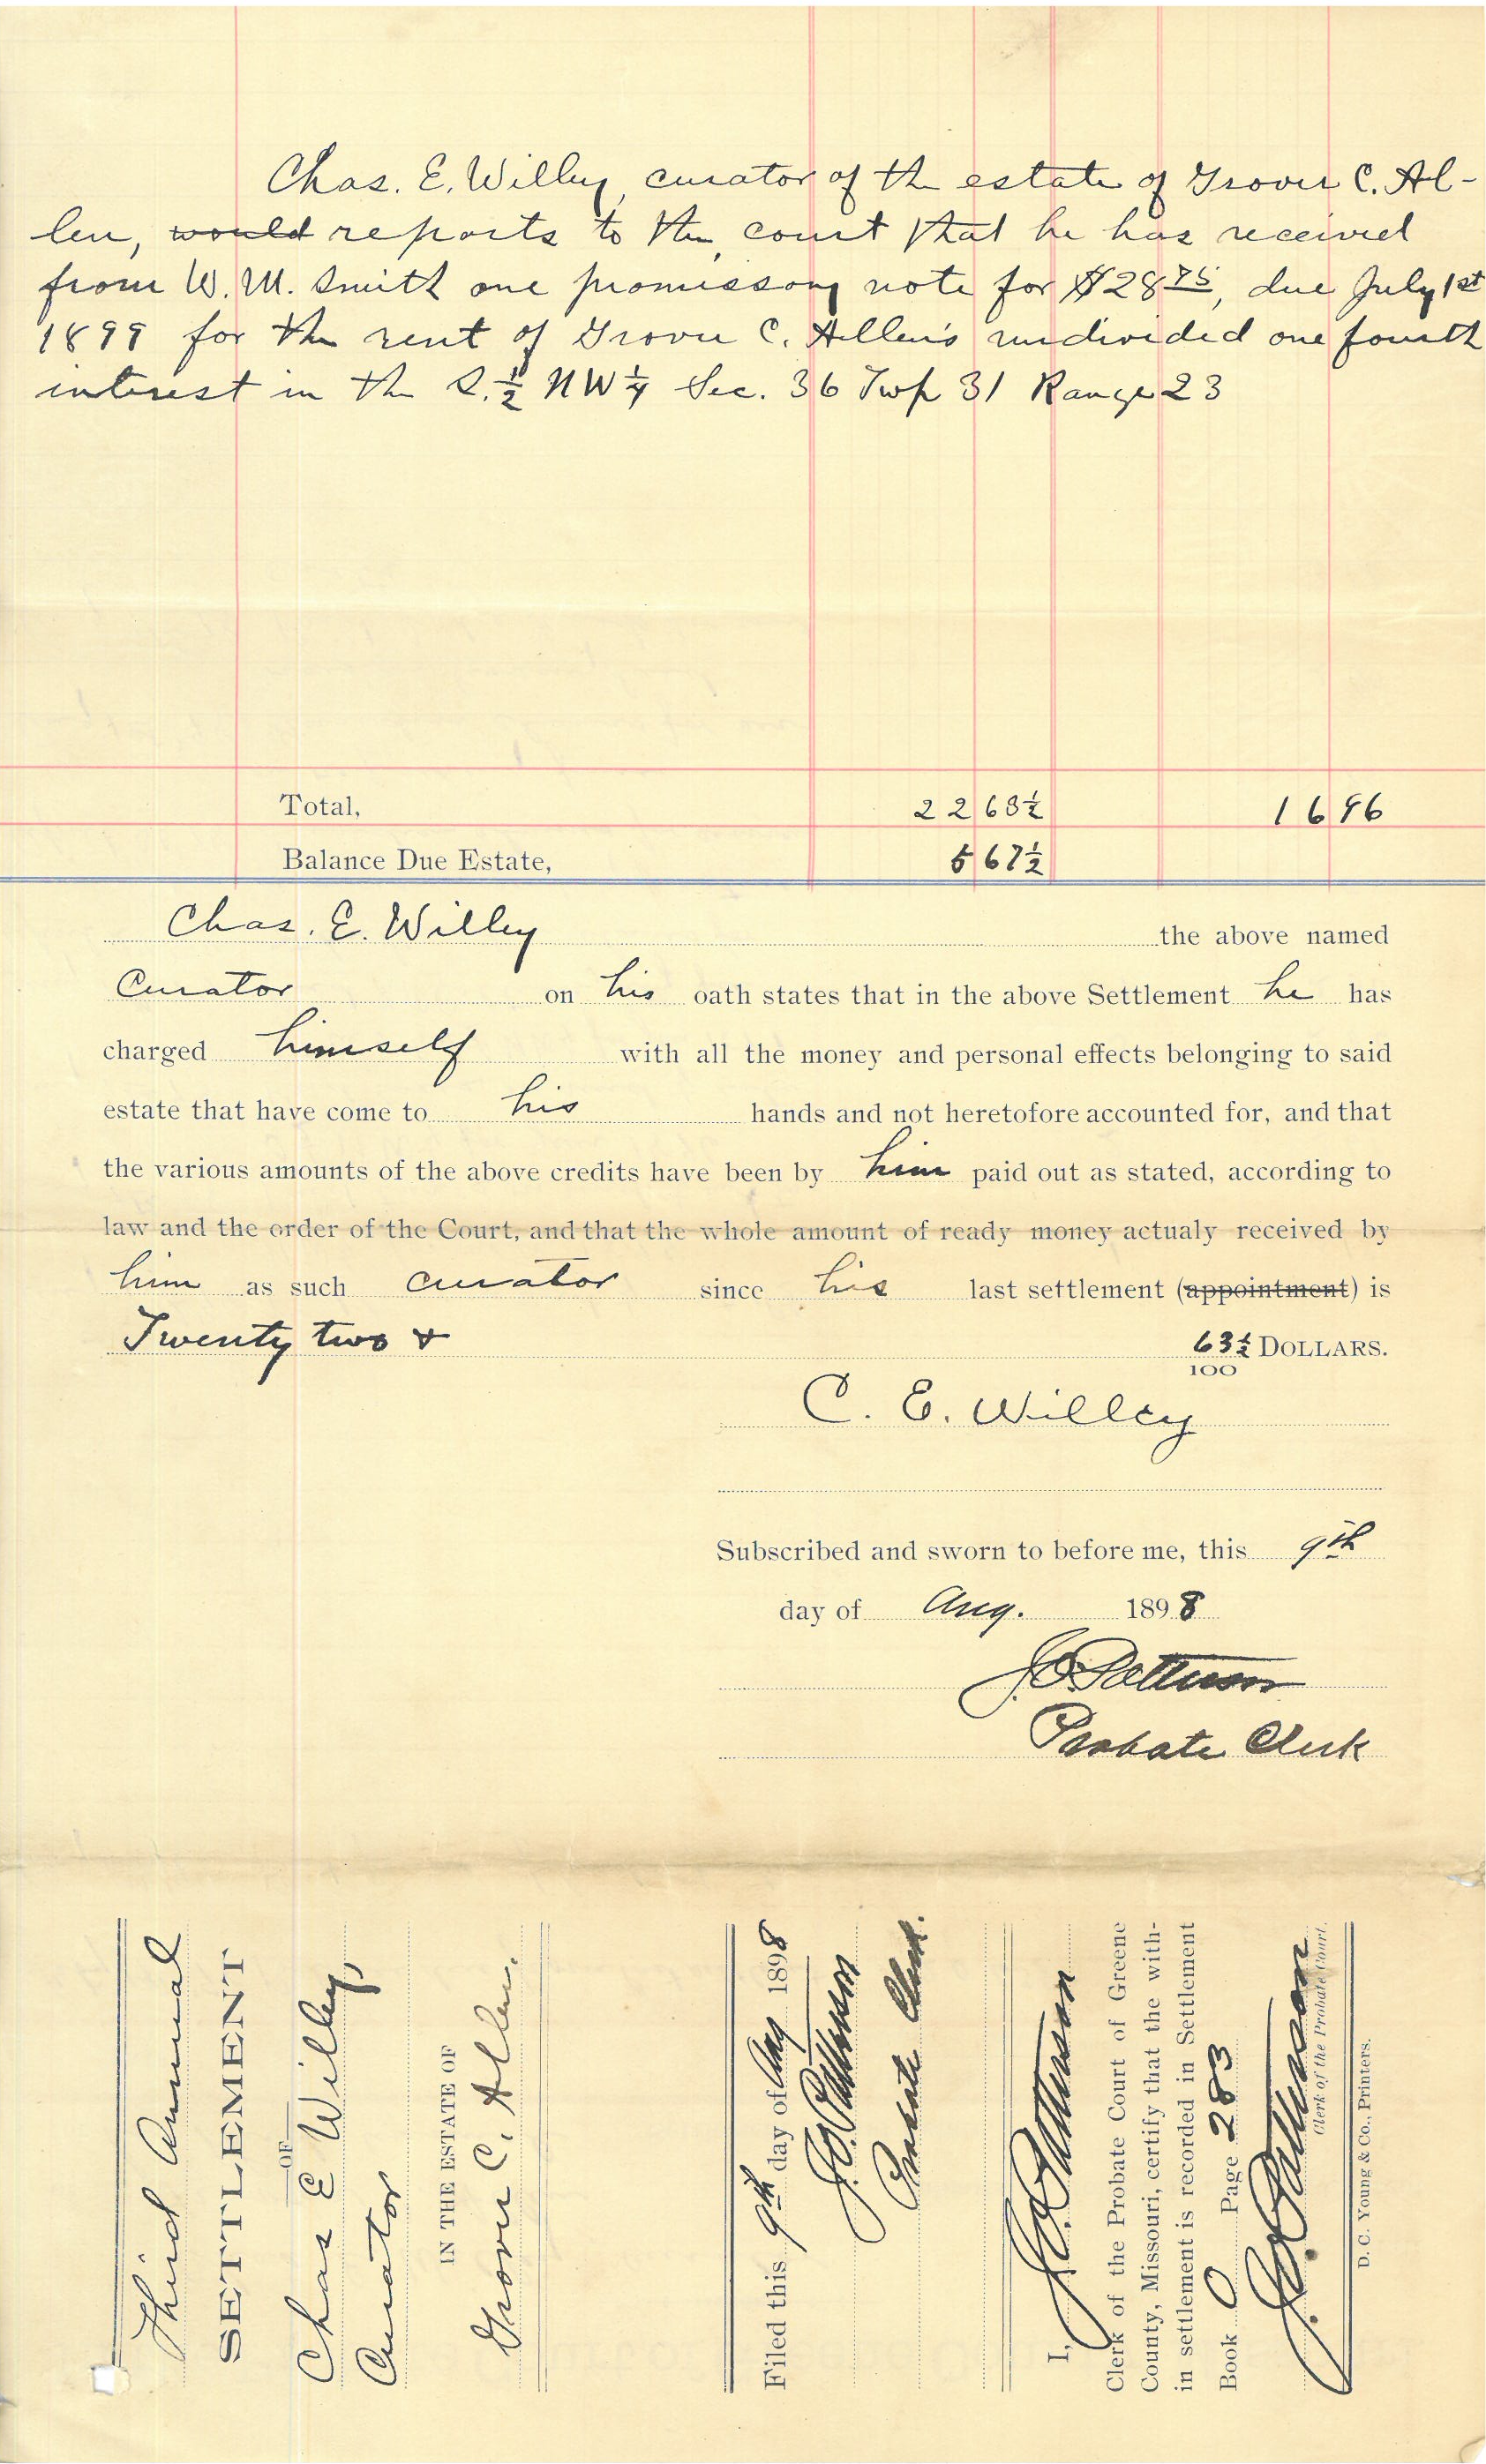 Chas. E. Willey, curator of the estate of Grover C. Al-
len, ~~would~~ reports to the court that he has received
from W. M. Smith one promissory note for $28 75, due July 1st
1899 for the rent of Grover C. Allen's undivided one fourth
interest in the S. 1/2 NW 1/4 Sec. 36 Twp 31 Range 23
Total, 22 63½ 16 96
Balance Due Estate, 5 67½
Chas. E. Willey the above named
Curator on his oath states that in the above Settlement he has
charged himself with all the money and personal effects belonging to said
estate that have come to his hands and not heretofore accounted for, and that
the various amounts of the above credits have been by him paid out as stated, according to
law and the order of the Court, and that the whole amount of ready money actualy received by
him as such curator since his last settlement (~~appointment~~) is
Twenty two & 63½/100 DOLLARS.
C. E. Willey
Subscribed and sworn to before me, this 9th
day of Aug. 1898
J. O. Patterson
Probate Clerk
Third Annual
SETTLEMENT
OF
Chas E Willey,
Curator
IN THE ESTATE OF
Grover C. Allen.
Filed this 9th day of Aug 1898
J. O. Patterson
Probate Clerk.
I, J. O. Patterson
Clerk of the Probate Court of Greene
County, Missouri, certify that the with-
in settlement is recorded in Settlement
Book O Page 283
J. O. Patterson
Clerk of the Probate Court.
D. C. Young & Co., Printers.